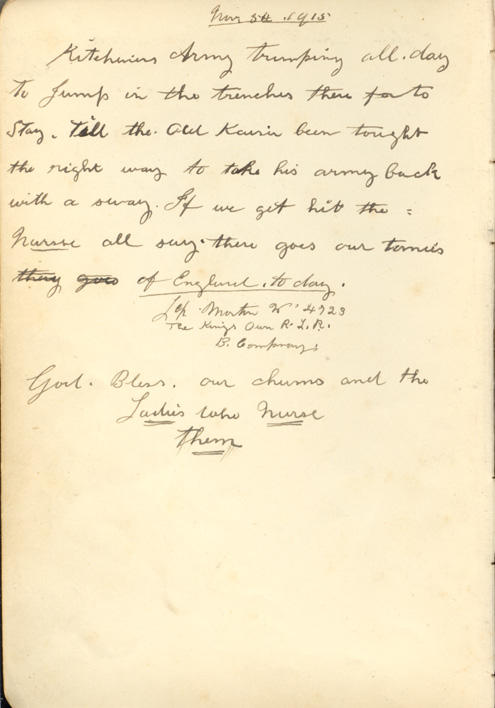 Nov 5th 1915
Kitcheners Army trumping all. day
To Jump in the trenches there for to
Stay. Till the. Old Kaiser been tought
the right way to take his army back
with a sway. If we get hit the =
Nurse all say. there goes our tomies
they goes of England. to day.
Martin W. 4723
The Kings Own R. L. R.
B. Company.
God. Bless. our chums and the
Ladies who Nurse
them